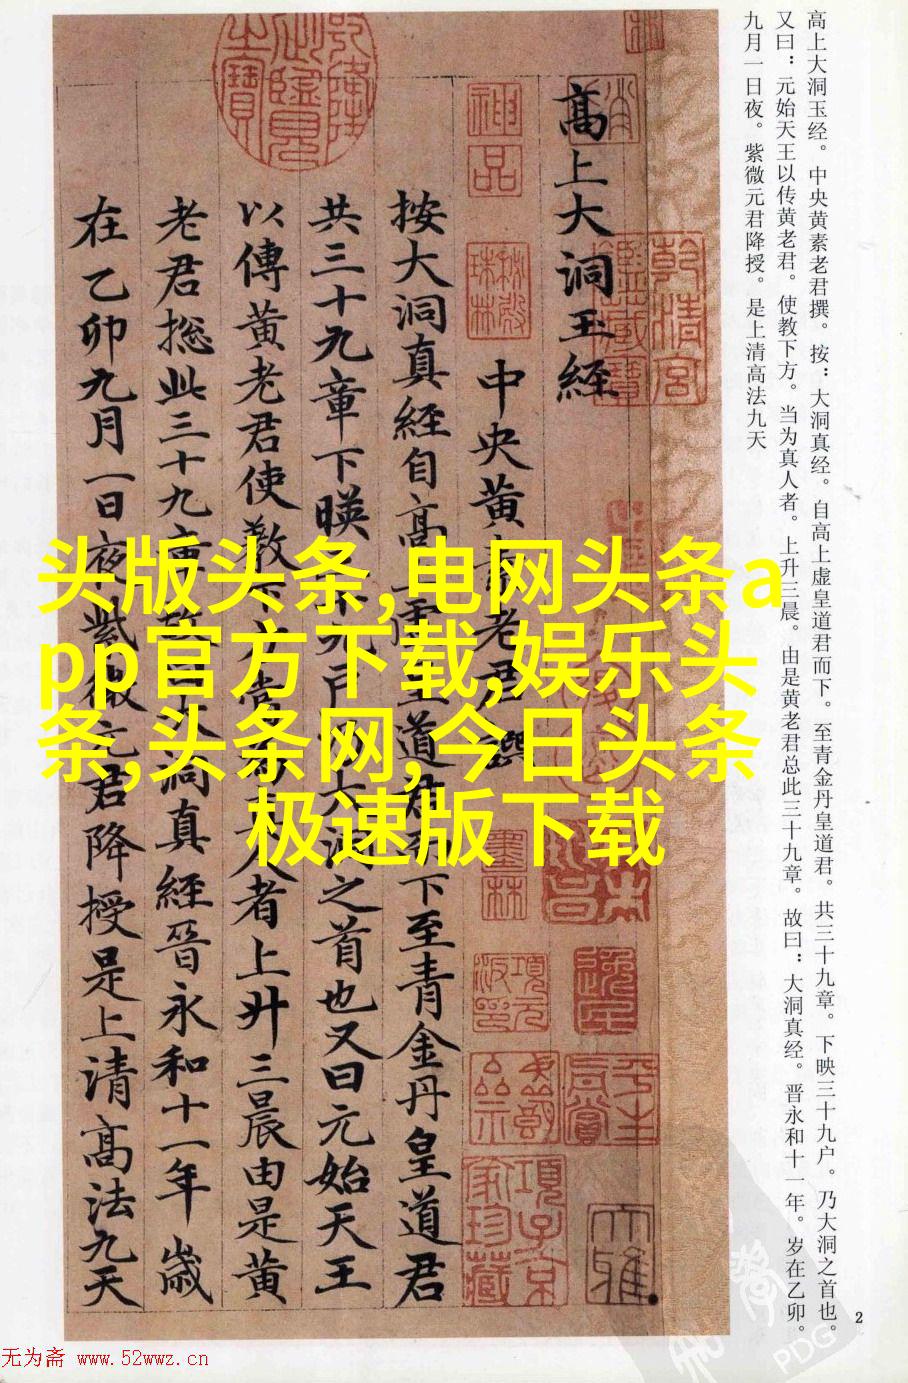 高上大洞玉经。中央黄素老君撰。按：大洞真经。自高上虚皇道君而下。至青金丹皇道君。共三十九章。下映三十九户。乃大洞之首也。
又曰：元始天王以传黄老君。使教下方。当为真人者。上升三晨。由是黄老君总此三十九章。故曰：大洞真经。晋永和十一年。岁在乙卯。
九月一日夜。紫微元君降授。是上清高法九天
高上大洞玉經
中央黄素老君
按大洞真經自高上虛皇道君而下至青金丹皇道君
共三十九章下暎三十九戶乃大洞之首也又曰元始天王
以傳黄老君使教下方當為真人者上升三晨由是黄
老君揔此三十九章故曰大洞真經晉永和十一年歲
在乙卯九月一日夜紫微元君降授是上清高法九天
神品
乾清宮鑑藏寶
墨林
項元汴印
平生真賞
項子京家珍藏
头版头条,电网头条a
pp官方下载,娱乐头
条,头条网,今日头条
极速版下载
2
无为斋 www.52wwz.cn
PDG